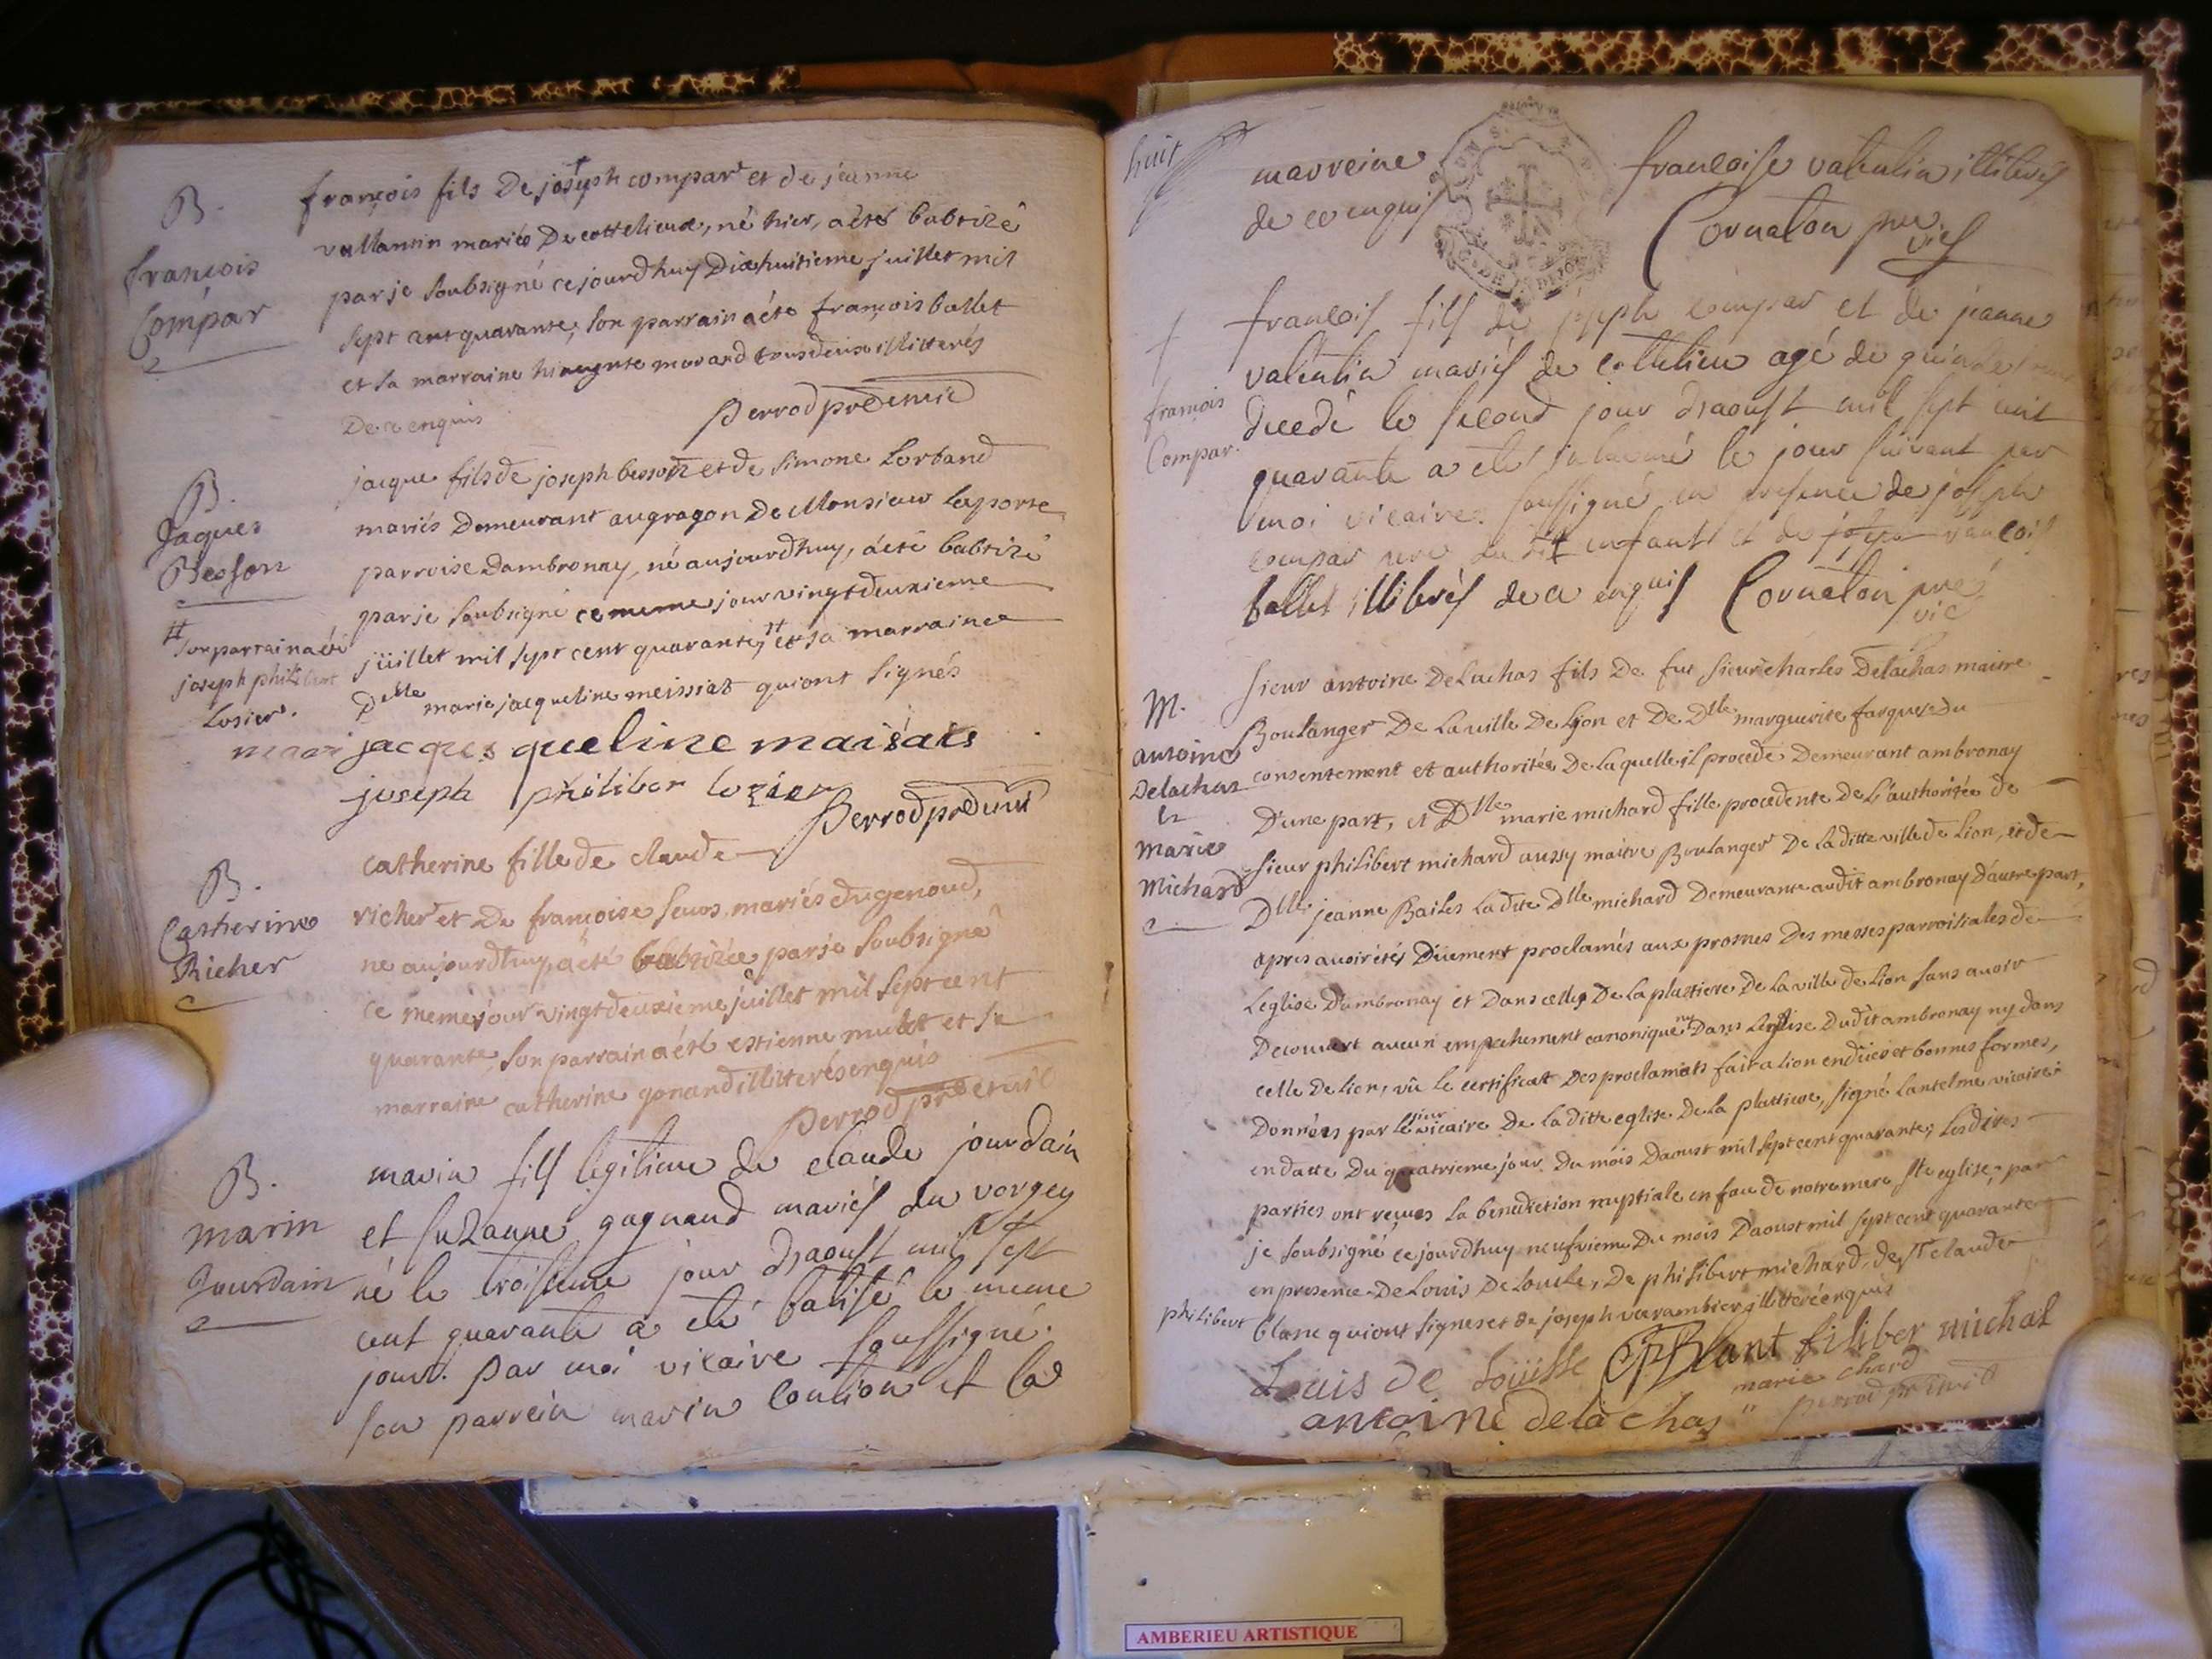 B.
françois
Compar
françois fils De joseph compar et de jeanne
vallantin mariés De cottelieux, né hier, a été babtizé
par je soubsigné cejourdhuy Dixhuitieme juillet mil
sept cent quarante, son parrain a éte françois ballet
et sa marraine morand tousdeux illitterés
De ce enquis
Perrod
B.
Jaques
Besson
jacque fils de joseph besson et de simone Lorband
mariés Demeurant augragon De Monsieur Laporte
parroise Dambronay, né aujourdhuy, a été babtizé
par je soubsigné ce meme jour vingtdeuxieme
juillet mil sept cent quarante, # et sa marraine
Dlle marie jacqueline meissiat quiont signés
# son parrain a été
joseph philibert
Losier.
jacques queline maisiats
joseph philiber lozier
Perrod
B.
Catherine
Richer
catherine fille de claude
richer et De françoise mariés du genoud,
ne aujourdhuy, a été babtizée par je soubsigné
ce meme jour vingtdeuxieme juillet mil sept cent
quarante, son parrain a été estienne mulet et sa
marraine catherine gonand illitterés enquis
Perrod
B.
Marin
Jourdain
marin fils legitime de claude jourdain
et suzanne gagnand mariés du vorgey
né le troisieme jour d'aoust mil sept
cent quarante a été batisé le meme
jour. par moi vicaire soussigné.
son parrein marin coulion et la
huit
marreine françoise valentin illiterés
de ce enquis Cornaton
vic
†
françois
Compar.
françois fils de joseph compar et de jeanne
valentin mariés de cotelieu agé de quinze
decedé le second jour d'aoust mil sept cent
quarante a eté inhumé le jour suivant par
moi vicaire soussigné en presence de joseph
compar pere du dit enfant et de françois
ballet illiterés de ce enquis Cornaton pre
vic
M.
antoine
Delachas
&
Marie
Michard
sieur antoine Delachas fils De fut sieur charles Delachas maitre
Boulanger De Laville De Lyon et De Dlle marguerite fargues du
consentement et authoritée De laquelle il procede Demeurant ambronay
D'une part, et Dlle marie michard fille procedente De L'authoritée de
sieur philibert michard aussy maitre Boulanger De laditte ville de Lion, et de
Dlle jeanne Bailes ladite Dlle michard Demeurante audit ambronay d'autre part,
apres avoir étés Düement proclamés aux prosnes Des messes parroisiales de
Leglise D'ambronay et Dans celles De la plattiere De la ville de Lion sans avoir
Decouvert aucun empechement canonique ny Dans Leglise Dudit ambronay ny dans
celle De Lion, vû le certificat Des proclamats fait a lion en dües et bonnes formes,
Données par le sieur vicaire De laditte eglise De la plattiere, signé Lantelme vicaire
en datte Du quatrieme jour Du mois Daoust mil sept cent quarante; Lesdites
parties ont reçües la benediction nuptiale en face de notre mere Ste eglise, par
je soubsigné ce jourdhuy neufvieme Du mois Daoust mil sept cent quarante
en presence De Louis De Loucle, De philibert michard, de st claude
philibert blanc quiont signes et de joseph varambier illitteré enquis
Louis de Loüisse CPBlant filiber michal
marie chard
antoine delachas Perrod
AMBERIEU ARTISTIQUE